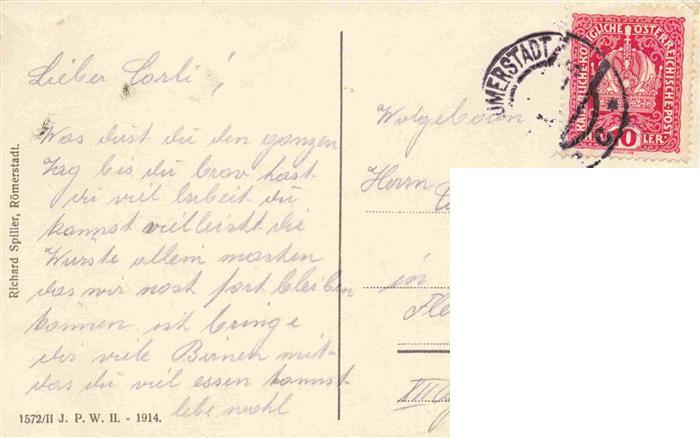 Lieber Carli!
Was dust du den ganzen
Tag bis du brav hast
du viel Arbeit du
kannst vielleicht die
Würste allein machen
das wir noch fort bleiben
können ist bringe
dir viele Birnen mit
das du viel essen kannst
lebe wohl
Richard Spiller, Römerstadt.
1572/II J. P. W. II. - 1914.
KAISERLICHE KÖNIGLICHE ÖSTERREICHISCHE POST
10
LER
ÖMERSTADT
Wolgeboren
Herrn
in
Fle
III